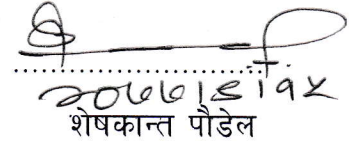 २०७७।६।१५
शेषकान्त पौडेल